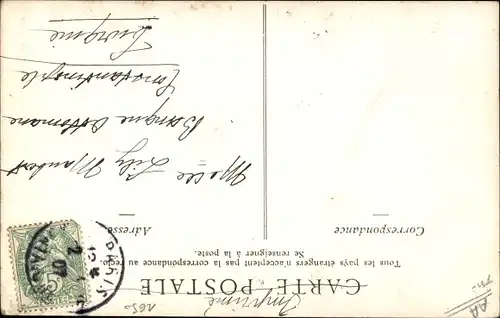 CARTE POSTALE
Tous les pays étrangers n'acceptent pas la correspondance au recto.
Se renseigner à la poste.
Correspondance
Adresse
Imprimé
Melle Lily Maubert
Banque Ottomane
Constantinople
Turquie
PARIS
07
5
AA